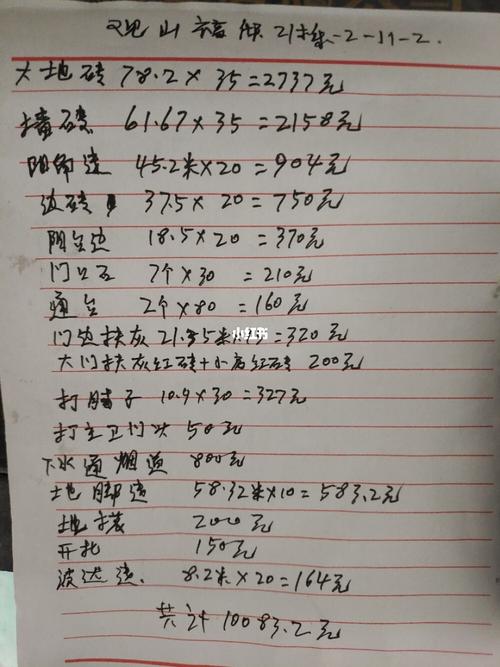 观山 21栋-2-11-2.
大地砖 78.2×35=2737元
墙砖 61.67×35=2158元
阴角边 45.2米×20=904元
边砖 37.5×20=750元
阳台边 18.5×20=370元
门口石 7个×30=210元
通台 2个×80=160元
门边扶灰 21.35米 =320元
小红书
大门扶灰红砖+小 红砖 200元
打 子 10.9×30=327元
打主卫门头 50元
下水通烟道 800元
地脚边 58.32米×10=583.2元
地 2000元
开孔 150元
波达边. 8.2米×20=164元
共计10083.2元